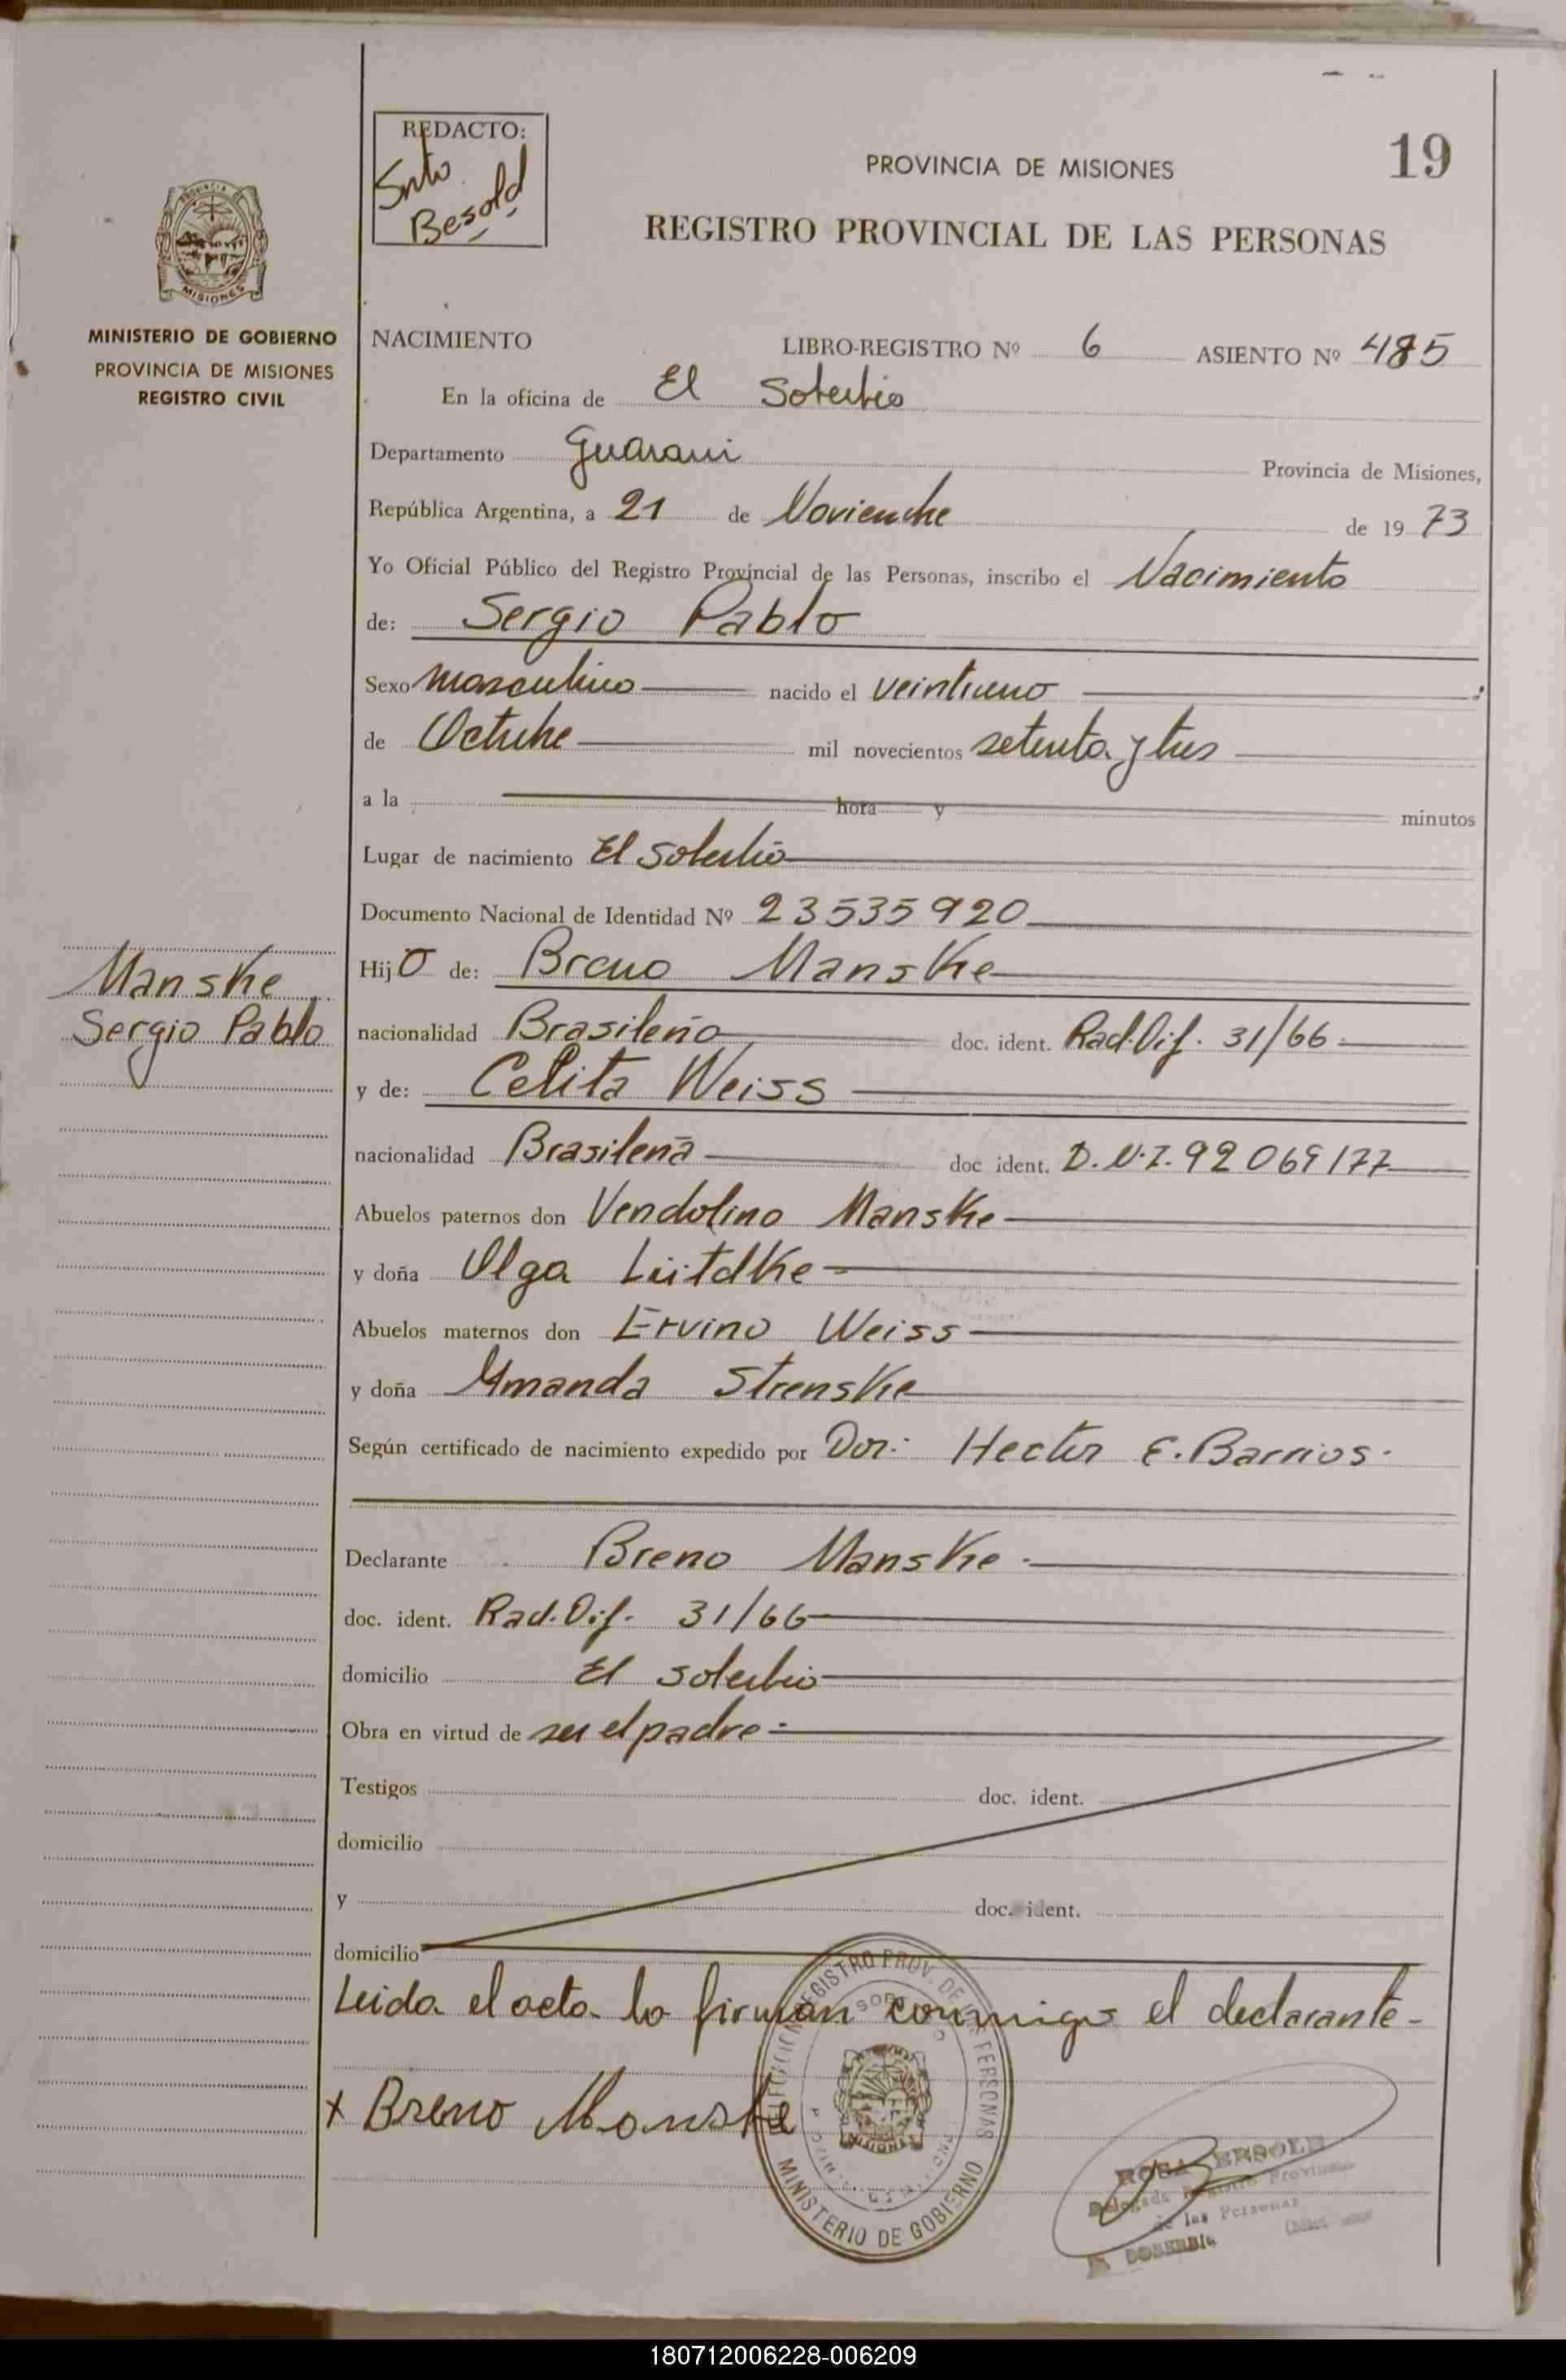 REDACTO:
Snto.
Besold
PROVINCIA DE MISIONES
19
REGISTRO PROVINCIAL DE LAS PERSONAS
PROVINCIA DE
MISIONES
MINISTERIO DE GOBIERNO
PROVINCIA DE MISIONES
REGISTRO CIVIL
NACIMIENTO LIBRO-REGISTRO Nº 6 ASIENTO Nº 485
En la oficina de El Soberbio
Departamento Guarani Provincia de Misiones,
República Argentina, a 21 de Noviembre de 19 73
Yo Oficial Público del Registro Provincial de las Personas, inscribo el Nacimiento
de: Sergio Pablo
Sexo masculino nacido el veintiuno
de Octubre mil novecientos setenta y tres
a la hora y minutos
Lugar de nacimiento El Soberbio
Documento Nacional de Identidad Nº 23535920
Manske
Sergio Pablo
Hijo de: Breno Manske
nacionalidad Brasileño doc. ident. Rad. Dif. 31/66
y de: Celita Weiss
nacionalidad Brasileña doc ident. D.N.I. 92069177
Abuelos paternos don Vendolino Manske
y doña Olga Lüitdke
Abuelos maternos don Ervino Weiss
y doña Amanda Strenske
Según certificado de nacimiento expedido por Dor.: Hector E. Barrios.
Declarante Breno Manske
doc. ident. Rad. Dif. 31/66
domicilio El soberbio
Obra en virtud de ser el padre
Testigos doc. ident.
domicilio
y doc. ident.
domicilio
Leida el acta la firman conmigo el declarante-
x Breno Manske
REGISTRO PROV. DE LAS PERSONAS
MISIONES
MINISTERIO DE GOBIERNO
ROSA BESOLD
Delegada Registro Provincial
de las Personas
EL SOBERBIO
180712006228-006209